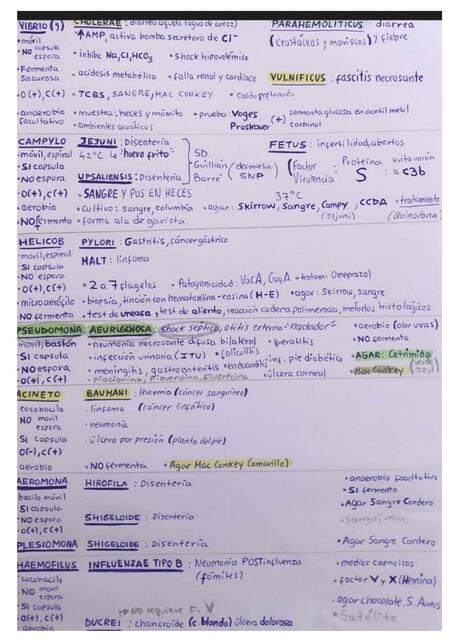 VIBRIO (9) CHOLERAE: diarrea aguda (agua de arroz) PARAHEMOLITICUS: diarrea
• móvil • ↑AMP, activa bomba secretora de Cl⁻ (crustáceos y mariscos) y fiebre
• NO capsula
espora • inhibe Na, Cl, HCO3 • Shock hipovolémico
• Fermenta sacarosa • acidosis metabólica • falla renal y cardiaco VULNIFICUS: fascitis necrosante
• O(+), C(+) • TCBS, SANGRE, MAC CONKEY • Caldo peptonado
• anaerobio facultativo • muestra: heces y vómito • prueba: Voges Proskauer (+) fermenta glucosa en acetil metil carbinol
• ambientes acuáticos
CAMPYLO JEJUNI: disentería FETUS: infertilidad, abortos
• móvil, espiral 42°C "huevo frito" SD. Guillian Barré (desmielin. SNP (Factor Virulencia Proteína S evita unión a C3b
• SI capsula
• NO espora UPSALIENSIS: Disentería
• O(+), C(+) • SANGRE Y PUS EN HECES 37°C
• aerobio • cultivo: sangre, columbia • agar: Skirrow, Sangre, Campy, CCDA • tratamiento
• NO fermenta • forma ala de gaviota (Jejuni) (Quinolona)
HELICOB PYLORI: Gastritis, cáncer gástrico
• movil, espiral
SI capsula MALT: linfoma
• NO espora
• O(+), C(+) • 2 a 7 flagelos • Patogenicidad: VacA, CagA • tratam: Omeprazol
• microaerófilo • biopsia, tinción con hematoxilina-eosina (H-E) • agar: Skirrow, sangre
NO fermenta • test de ureasa, test de aliento, reacción cadena polimerasa, metodos histológicos
PSEUDOMONA AEURIGENOSA: shock septico, otitis externa "nadador" • aerobio (olor uvas)
movil, bastón • neumonía necrosante difusa bilateral • queratitis • NO fermenta
SI capsula • infección urinaria (ITU) • foliculitis • inf. pie diabético • AGAR: Cetrimida
• NO espora • meningitis, gastroenteritis • endocarditis • úlcera corneal • Mac Conkey (verde azul)
• O(+), C(+) • Piocianina, Pioverdina, Fluorecina
ACINETO BAUMANI: leucemia (cáncer sanguíneo)
cocobacilo • linfoma (cáncer linfático)
NO movil
espora • neumonía
SI capsula • úlcera por presión (planta del pie)
O(-), C(+)
aerobio • NO fermenta • Agar Mac Conkey (amarillo)
AEROMONA HIDROFILA: Disentería • anaerobio facultativo
bacilo móvil • SI fermenta
SI capsula • Agar Sangre Cordero
NO espora SHIGELOIDE: Disentería
O(+), C(+)
PLESIOMONA SHIGELOIDE: Disentería • Agar Sangre Cordero
HAEMOFILUS INFLUENZAE TIPO B: Neumonía POSTinfluenza • medios capnoicos
• cocobacilo (fómites) • factor V y X (Hemina)
NO movil
espora • agar chocolate, S. Aureus
SI capsula → No requiere F. V • Satélite
• O(+), C(+)
• aerobio DUCREI: chancroide (c. blando) úlcera dolorosa